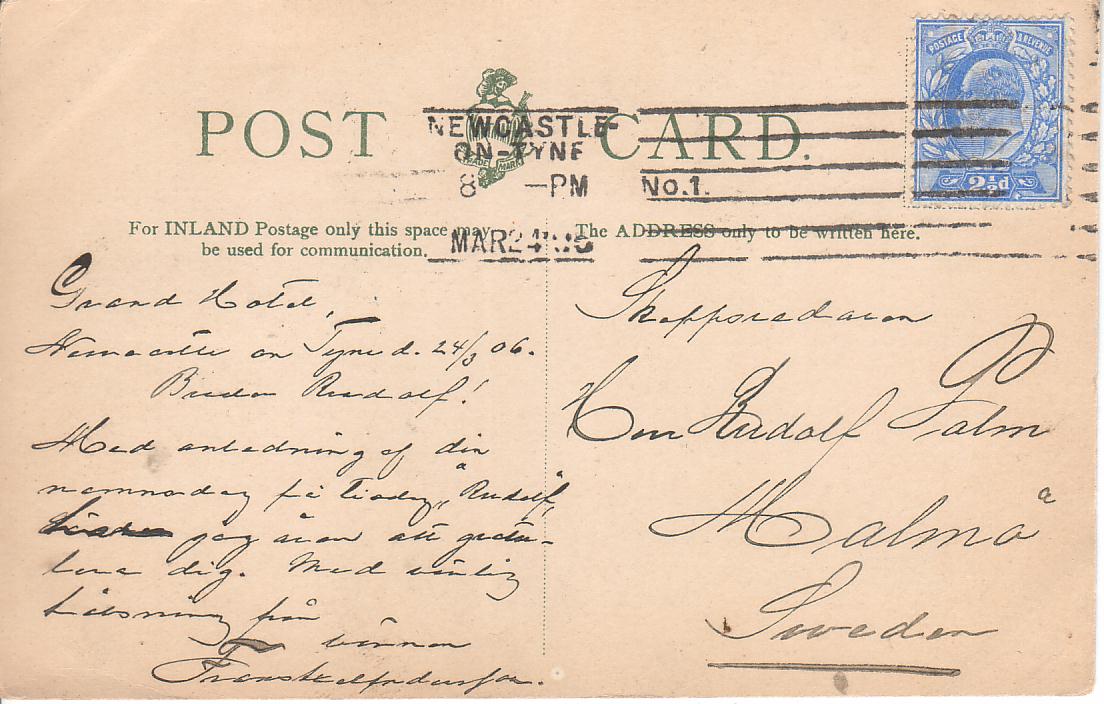 POST CARD.
TRADE MARK
POSTAGE & REVENUE
2½d
NEWCASTLE-
ON-TYNE
8 -PM No.1.
MAR 24 06
For INLAND Postage only this space may
be used for communication.
The ADDRESS only to be written here.
Grand Hotel,
Newcastle on Tyne d. 24/3 06.
Broder Rudolf!
Med anledning af din
namnsdag på tisdag, "Rudolf",
jag äran att gratu-
lera dig. Med vänlig
hälsning från
vännen
Skeppsredaren
Herr Rudolf Palm
Malmö
Sweden